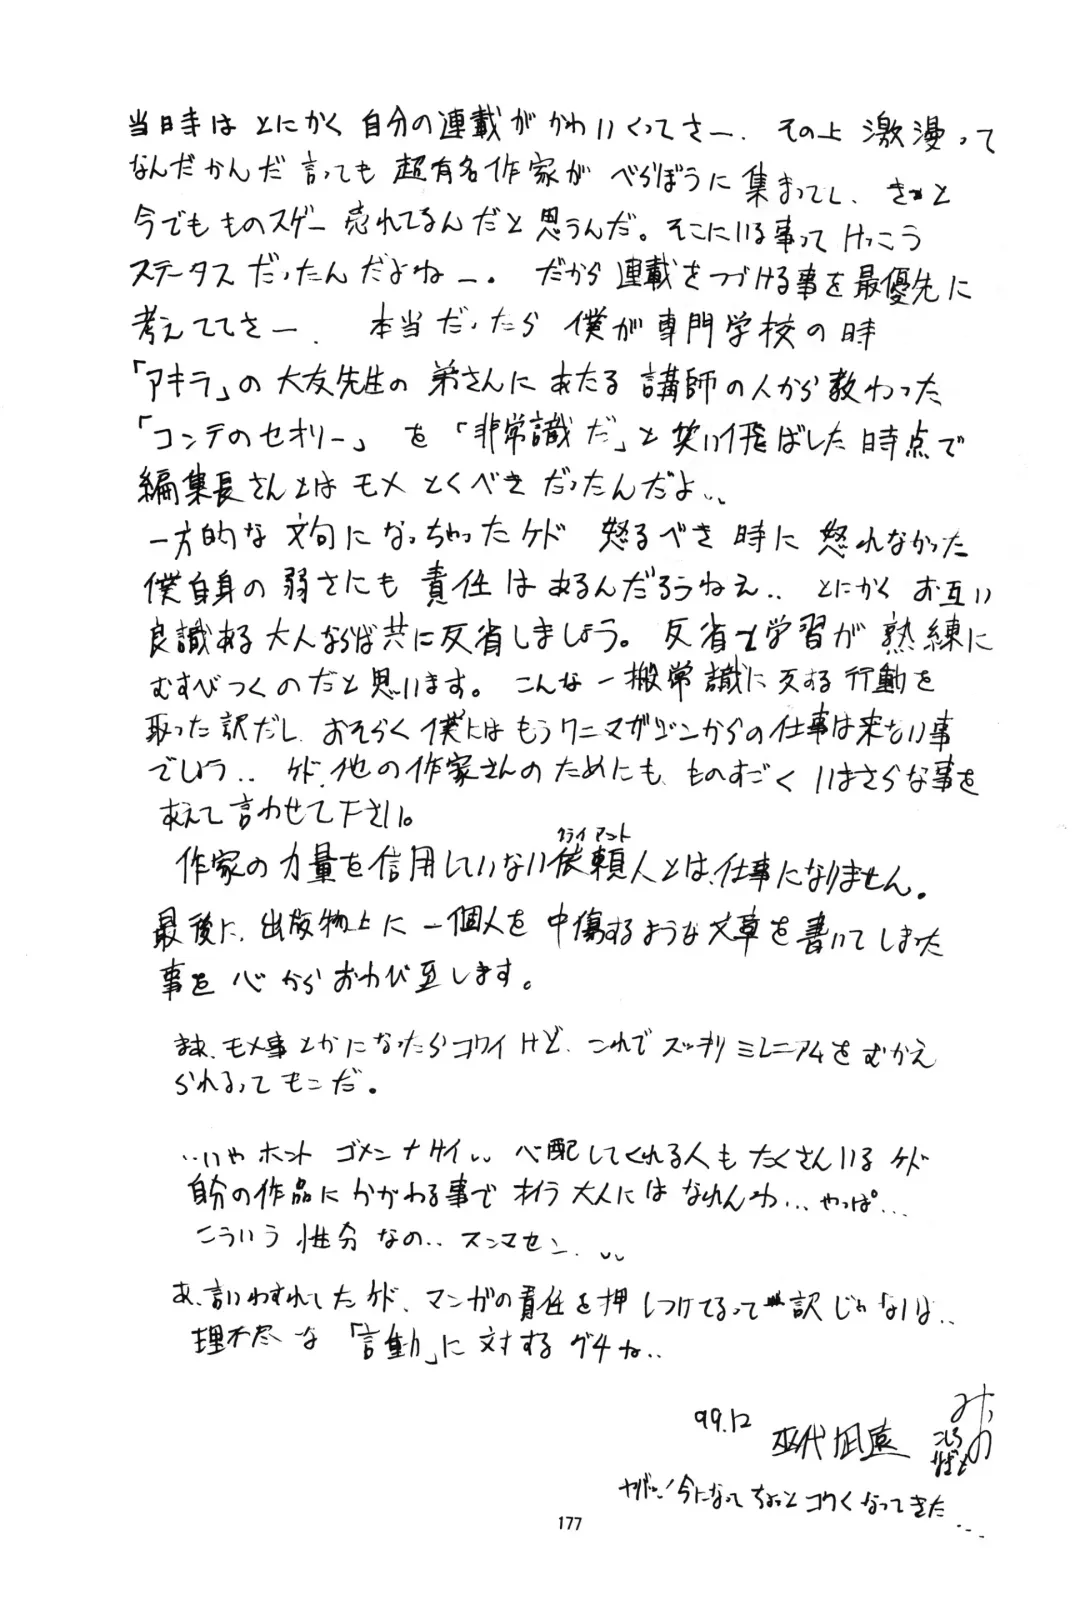 当時は とにかく 自分の連載が かわいくってさー. その上 激漫って
なんだかんだ 言っても 超有名作家が べらぼうに 集まってし、 きっと
今でも ものスゲー 売れてるんだと 思うんだ。そこにいる事って けっこう
ステータス だったんだよねー. だから 連載をつづける事を最優先に
考えててさー. 本当だったら 僕が専門学校の時
「アキラ」の 大友先生の 弟さんに あたる 講師の人から 教わった
「コンテのセオリー」 を 「非常識だ」と 笑い飛ばした時点で
編集長さんとは モメ とくべき だったんだよ..
一方的な 文句に なっちゃったケド 怒るべき 時に 怒れなかった
僕自身の 弱さにも 責任 は あるんだろうねえ.. とにかく お互い
良識ある 大人ならば共に反省しましょう。 反省と学習が 熟練に
むすびつくのだと思います。 こんな 一搬常識に反する行動を
取った訳だし. おそらく 僕にはもうワニマガジンからの仕事は来ない事
でしょう.. ケド. 他の作家さんのためにも、 ものすごく いまさらな事を
あえて言わせて下さい。
作家の力量を信用していない依頼人とは、仕事になりません。
クライアント
最後に、出版物上に 一個人を 中傷するような文章を書いてしまった
事を 心から おわび至します。
まあ、モメ事とかになったらコワイけど、これで スッキリ ミレニアムを むかえ
られるって もんだ。
..いや ホント ゴメンナサイ.. 心配してくれる人も たくさんいる ケド
自分の作品に かかわる事で オイラ 大人には なれんわ... やっぱ...
こういう 性分 なの.. スンマセン...
あ、言いわすれしたケド、マンガの責任を押しつけてるって訳じゃないよ..
理不尽な 「言動」に 対する グチね..
99.12
巫代凪遠
みつの
こしろ
なぎと
ヤバッ!今になって ちょっと コワくなってきた...
177